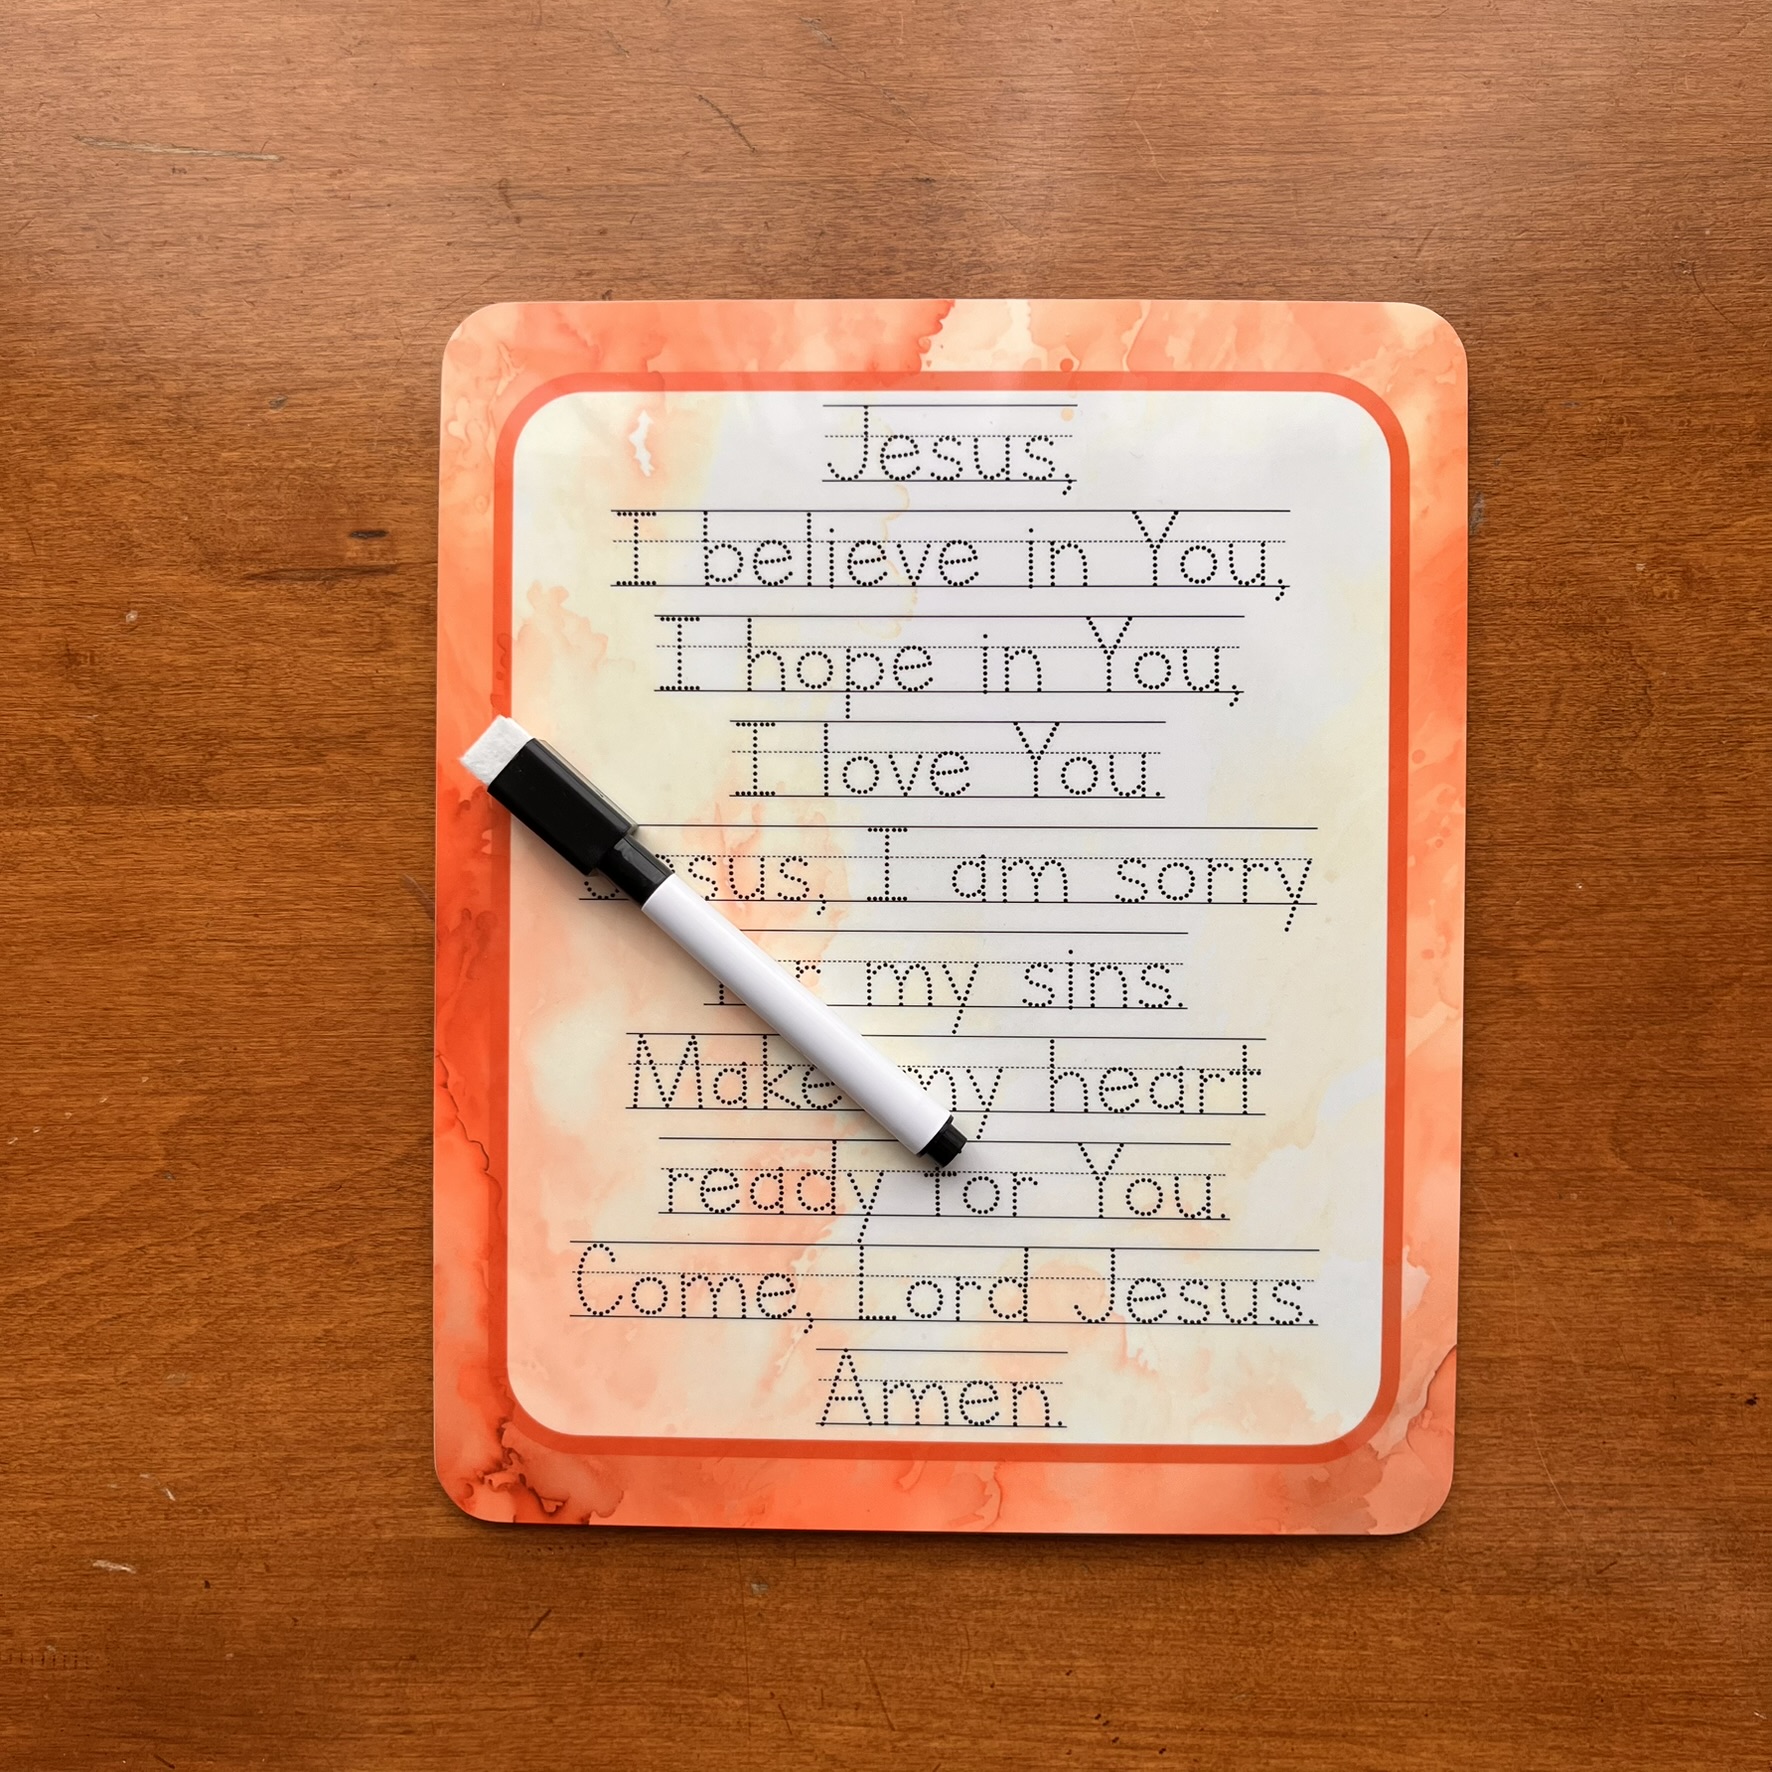 Jesus,
I believe in You,
I hope in You,
I love You.
Jesus, I am sorry
for my sins.
Make my heart
ready for You.
Come, Lord Jesus.
Amen.